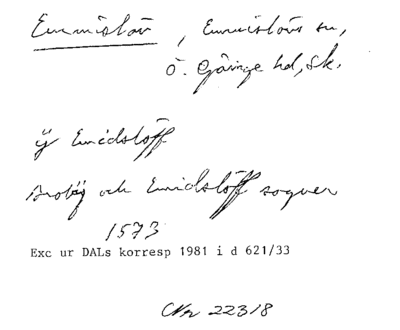 Emmislöv, Emmislövs sn,
Ö. Göinge hd, Sk.
ij Emidslöff
Broby och Emidslöff sogner
1573
Exc ur DALs korresp 1981 i d 621/33
Nr 22318